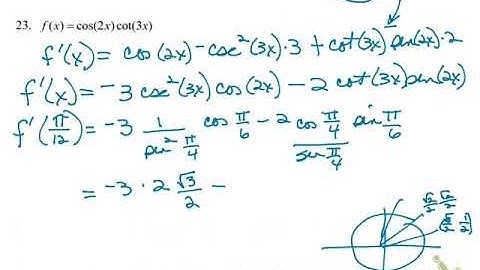 23. f(x) = cos(2x)cot(3x)
f'(x) = cos(2x) - csc²(3x)·3 + cot(3x) sin(2x)·2
f'(x) = -3 csc²(3x) cos(2x) - 2 cot(3x) sin(2x)
f'(π/12) = -3 1/sin² π/4 cos π/6 - 2 cos π/4 / sin π/4 sin π/6
= -3 · 2 √3/2 -
√2/2 √2/2